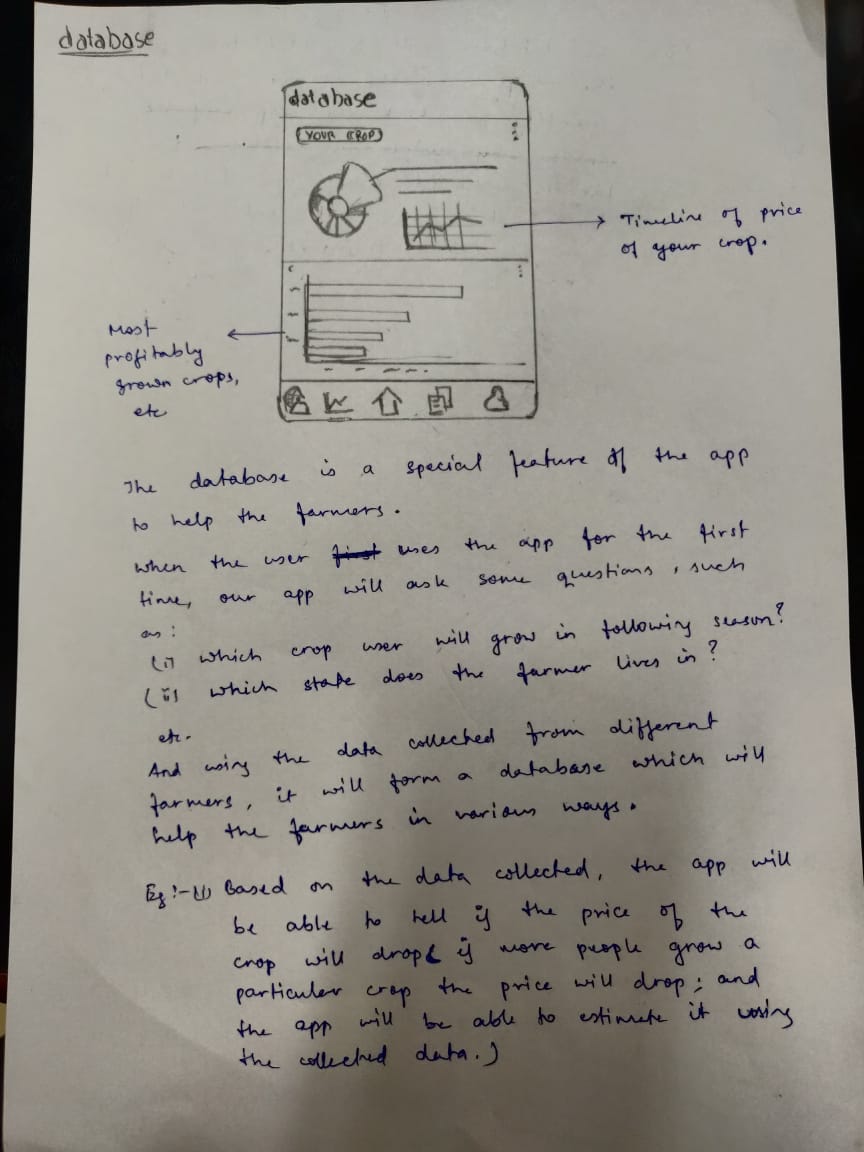 database
database
YOUR CROP
Timeline of price
of your crop.
Most
profitably
grown crops,
etc
The database is a special feature of the app
to help the farmers.
when the user first uses the app for the first
time, our app will ask some questions, such
as:
(i) which crop user will grow in following season?
(ii) which state does the farmer lives in?
etc.
And using the data collected from different
farmers, it will form a database which will
help the farmers in various ways.
Eg:-(1) Based on the data collected, the app will
be able to tell if the price of the
crop will drop( if more people grow a
particuler crop the price will drop; and
the app will be able to estimate it using
the collected data.)